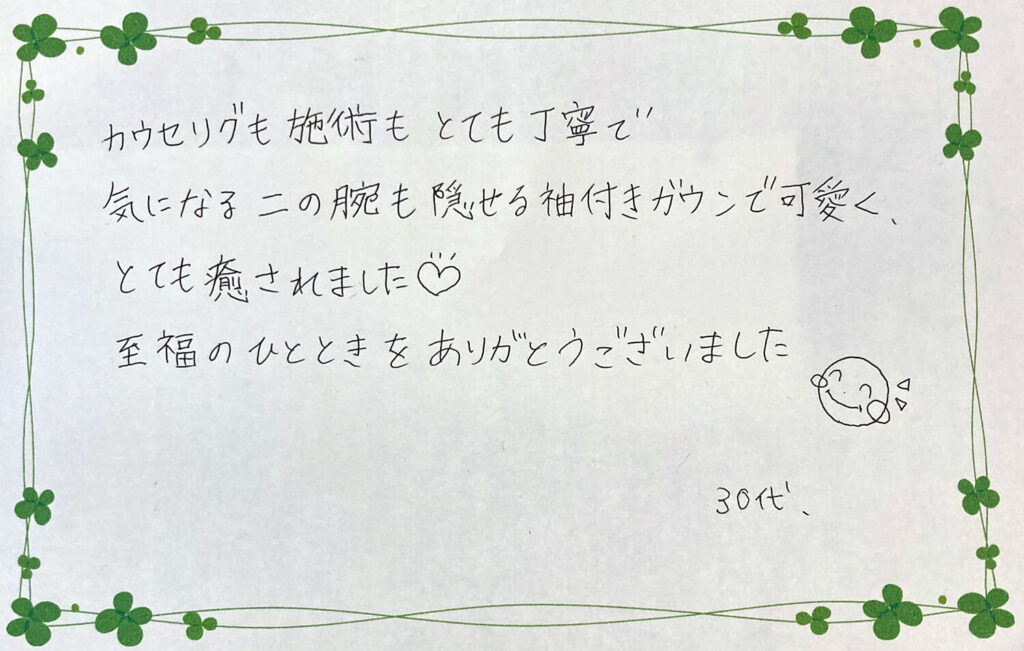 カウセリグも施術もとても丁寧で
気になる二の腕も隠せる袖付きガウンで可愛く、
とても癒されました♡
至福のひとときをありがとうございました
30代、